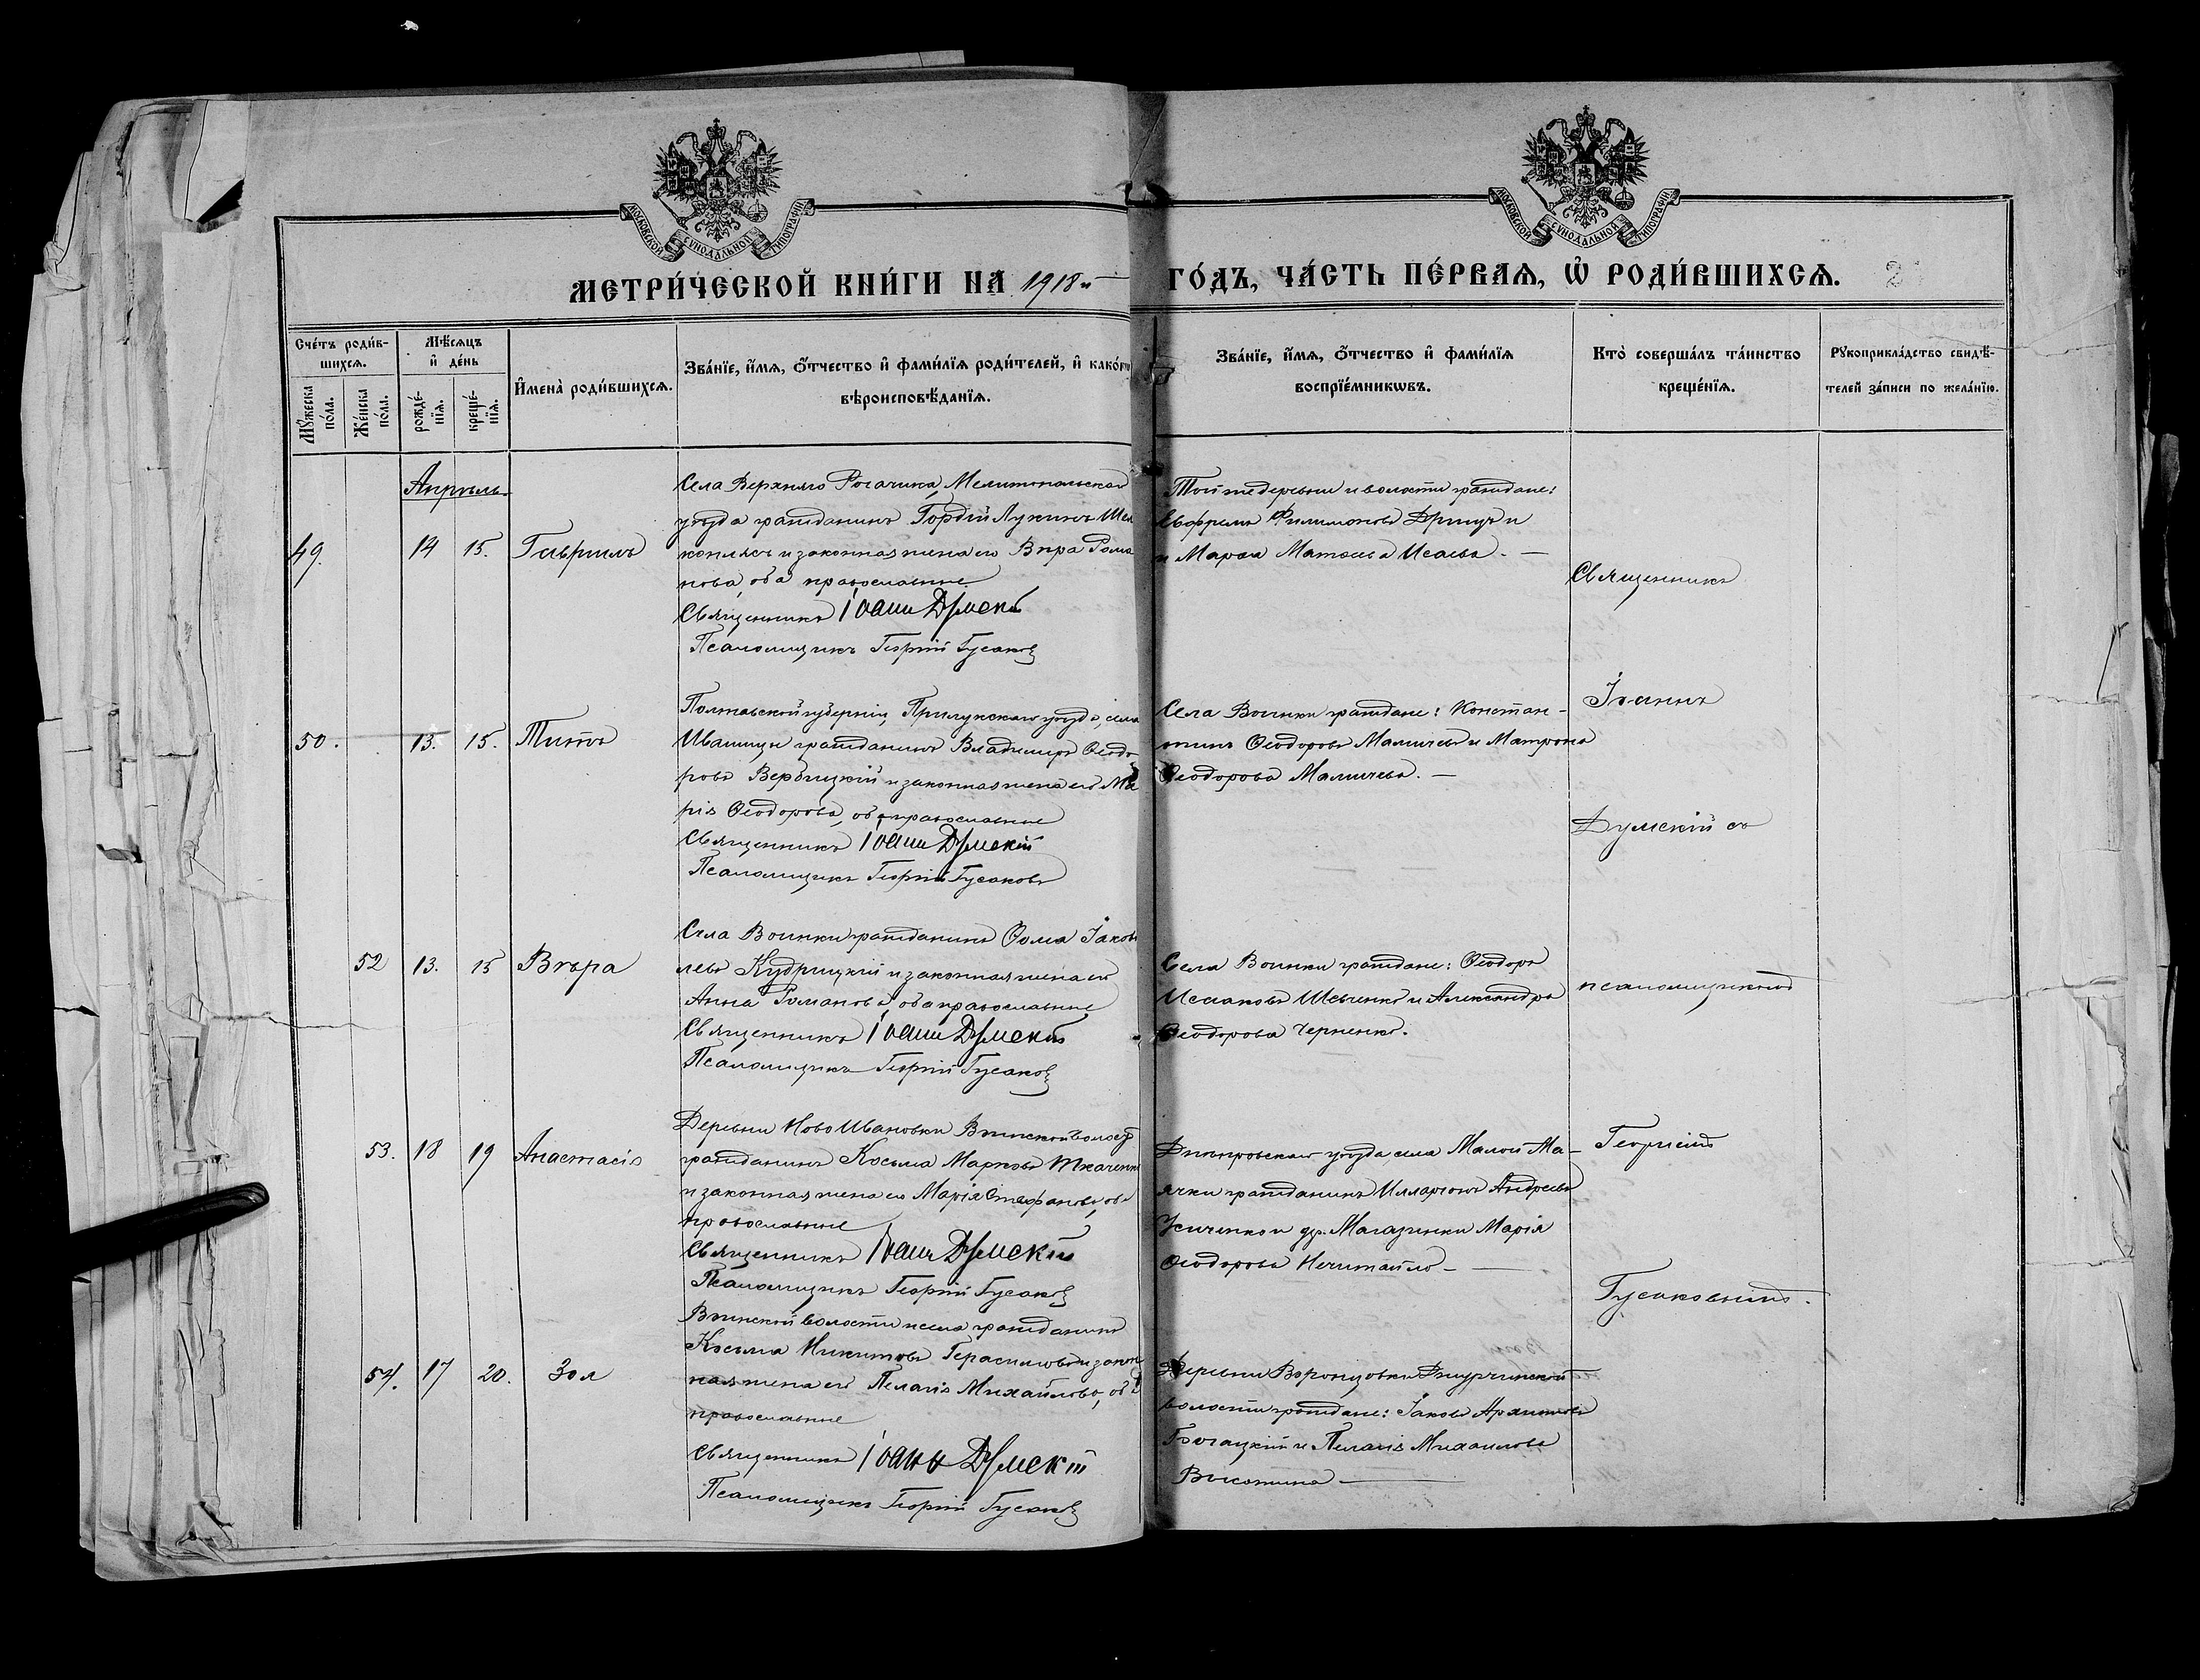 МОСКОВСКОЙ СѴНОДАЛЬНОЙ ТИПОГРАФІИ
МОСКОВСКОЙ СѴНОДАЛЬНОЙ ТИПОГРАФІИ
МЕТРИ́ЧЕСКОЙ КНИ́ГИ НА 1918й
ГО́ДЪ, ЧА́СТЬ ПЕ́РВАѦ, Ѡ РОДИ́ВШИХСѦ.
2
Сче́тъ роди́в-
шихсѧ.
Мꙋжеска по́ла.
Же́нска по́ла.
Мѣ́сѧцъ
и҆ де́нь
рожде́-
нїѧ.
креще́-
нїѧ.
И҆мена̀ роди́вшихсѧ.
Зва́нїе, и҆́мѧ, ѻ҆́тчество и҆ фами́лїѧ роди́телей, и҆ како́гѡ
вѣроисповѣ́данїѧ.
Зва́нїе, и҆́мѧ, ѻ҆́тчество и҆ фами́лїѧ
воспрїе́мникѡвъ.
Кто̀ соверша́лъ та́инство
креще́нїѧ.
Рꙋкоприкла́дство свидѣ́-
телей за́писи по жела́нїю.
Апрѣль
49.
14
15.
Гавріилъ
Села Верхняго Рогачика, Мелитопольскаго
уѣзда гражданинъ Гордій Лукинъ
и законная жена его Вѣра Рома
нова, оба православные
Священникъ Іоаннъ Думскій
Псаломщикъ Георгій Гусаковъ
Той же деревни и волости граждане:
Филимоновъ и
и Марѳа Матѳеева Исаева. —
Священникъ
50.
13.
15.
Титъ
Полтавской губерніи, Прилукскаго уѣзда, села
Иваницы гражданинъ Владимиръ Ѳеодо
ровъ Вербицкій и законная жена его Ма
рія Ѳеодорова, оба православные
Священникъ Іоаннъ Думскій
Псаломщикъ Георгій Гусаковъ
Села Воинки граждане: Констан-
тинъ Ѳеодоровъ Мамичевъ и Матрона
Ѳеодорова Мамичева. —
Іоаннъ
Думскій съ
52
13.
15
Вѣра
Села Воинки гражданинъ Ѳома Іаков
левъ Кудрицкій и законная жена его
Анна Романова, оба православные
Священникъ Іоаннъ Думскій
Псаломщикъ Георгій Гусаковъ
Села Воинки граждане: Ѳеодоръ
Исааковъ Шевченко и Александра
Ѳеодорова Черненко.
псаломщикомъ
53.
18
19
Анастасія
Деревни Ново Ивановки Воинской волости
гражданинъ Косьма Марковъ Ткаченко
и законная жена его Марія Стефанова, оба
православные
Священникъ Іоаннъ Думскій
Псаломщикъ Георгій Гусаковъ
Днѣпровскаго уѣзда, села Малой Ма-
ячки гражданинъ Илларіонъ Андреевъ
Усиченко и др. Магазинки Марія
Ѳеодорова Нечитайло —
Георгіемъ
Гусаковымъ.
54.
17
20.
Зоя
Воинской волости и села гражданинъ
Косьма Никитовъ Герасимовъ и закон
ная жена его Пелагія Михайлова, оба
православные
Священникъ Іоаннъ Думскій
Псаломщикъ Георгій Гусаковъ
Деревни Воронцовки Джурчинской
волости граждане: Іаковъ Архиповъ
Богацкій и Пелагія Михаилова
Высотина —